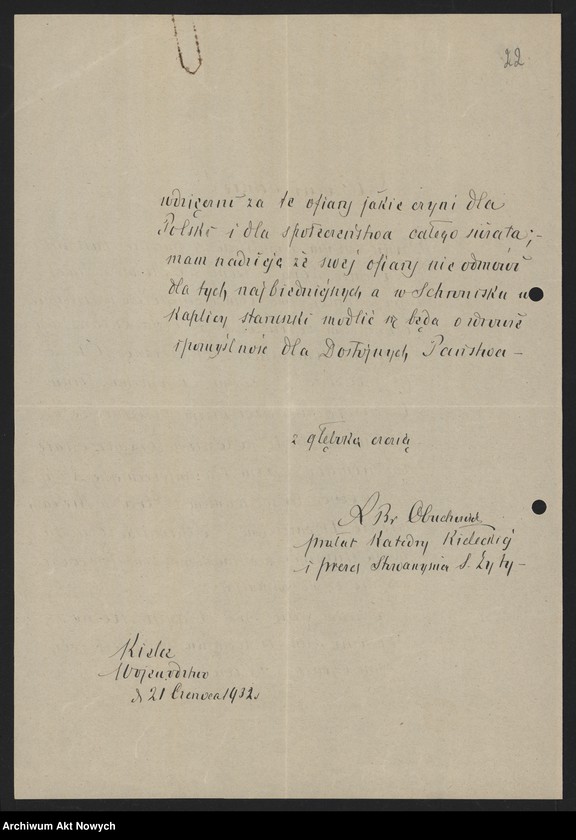 22
wdzięczni za te ofiary jakie czyni dla
Polski i dla społeczeństwa całego świata;-
mam nadzieję że swej ofiary nie odmówi
dla tych najbiedniejszych a w Schronisku w
Kaplicy staruszki modlić się będą o zdrowie
i pomyślność dla Dostojnych Państwa -
z głęboką czcią
X Br Obuchowicz
prałat Katedry Kieleckiej
i prezes Stowarzysenia S. Zyty -
Kielce
Województwo
d 21 Czerwca 1932 r
Archiwum Akt Nowych